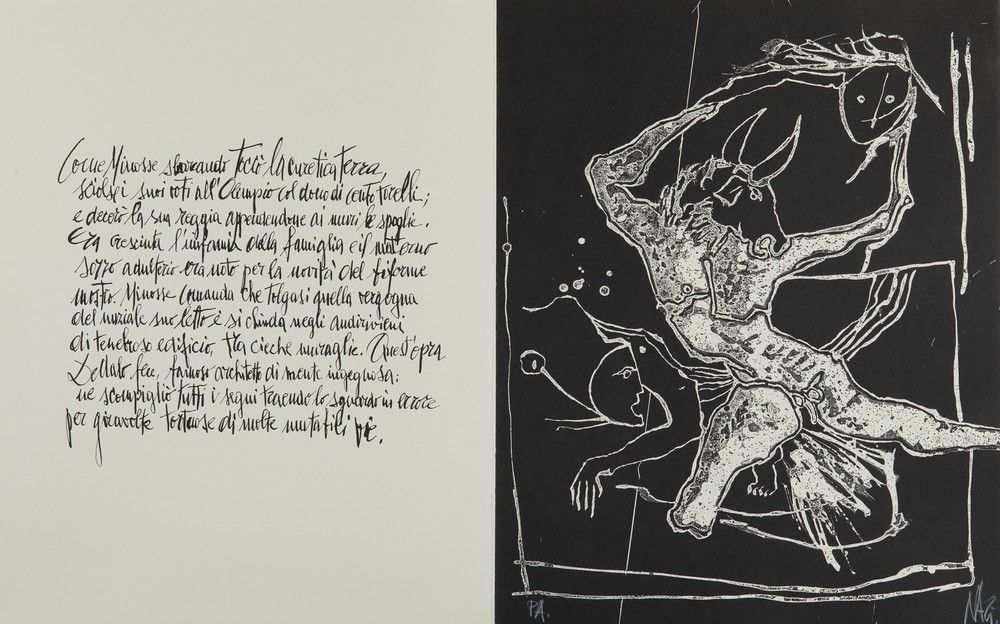 Come Minosse sbarcando toccò la curetica terra,
sciolse i suoi voti all'Olimpio col dono di cento torelli;
e decorò la sua reggia appendendone ai muri le spoglie.
Era cresciuta l'infamia della famiglia e il materno
sozzo adulterio era noto per la novità del biforme
mostro. Minosse comanda che tolgasi quella vergogna
del nuziale suo letto e si chiuda negli andirivieni
di tenebroso edificio, tra cieche muraglie. Quest'opra
Dedalo fece, famoso architetto di mente ingegnosa:
ne scompigliò tutti i segni traendo lo sguardo in errore
per giravolte tortuose di molte mutabili vie.
P.A.